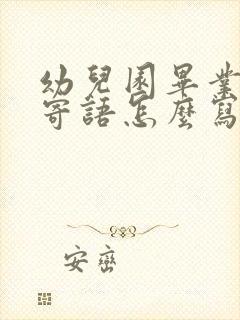 幼兒園畢業
寄語怎麼寫
安巒